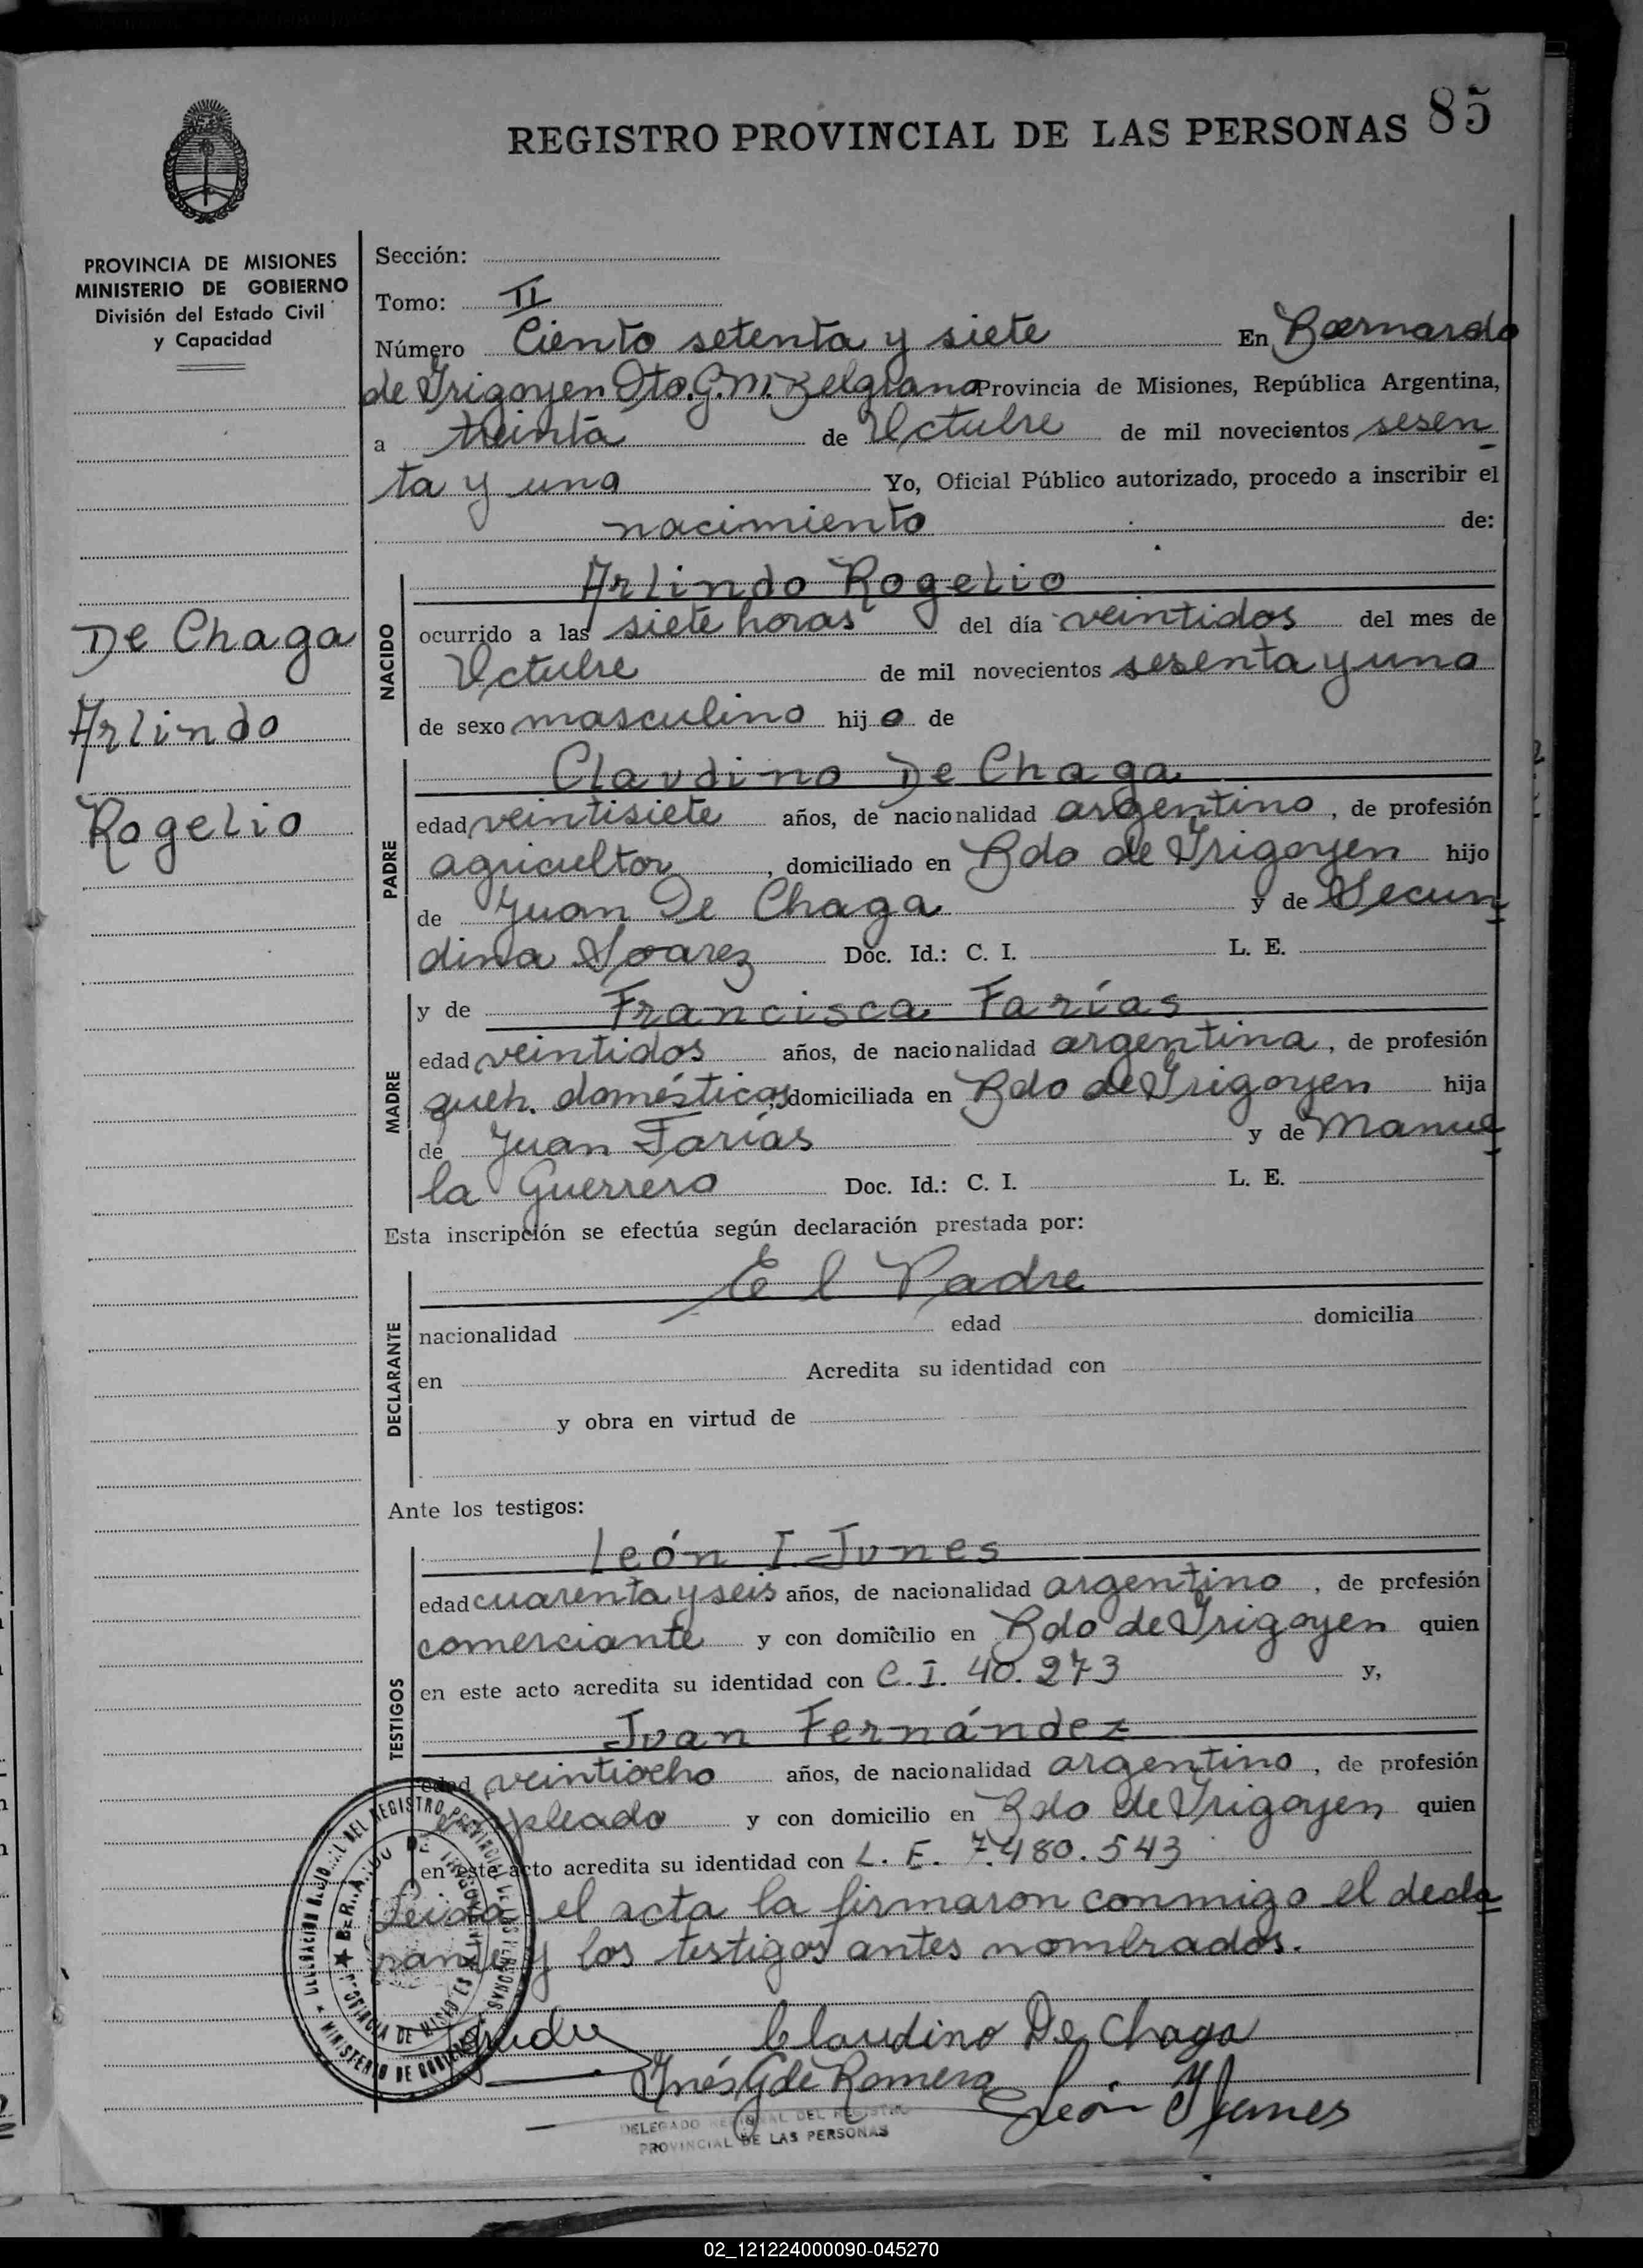 85
REGISTRO PROVINCIAL DE LAS PERSONAS
PROVINCIA DE MISIONES
MINISTERIO DE GOBIERNO
División del Estado Civil
y Capacidad
De Chaga
Arlindo
Rogelio
Sección:
Tomo: II
Número Ciento setenta y siete En Bernardo
de Irigoyen Dto. G. M. Belgrano Provincia de Misiones, República Argentina,
a treinta de Octubre de mil novecientos sesen
ta y uno Yo, Oficial Público autorizado, procedo a inscribir el
nacimiento de:
NACIDO
Arlindo Rogelio
ocurrido a las siete horas del día veintidos del mes de
Octubre de mil novecientos sesenta y uno
de sexo masculino hijo de
PADRE
Claudino De Chaga
edad veintisiete años, de nacionalidad argentino, de profesión
agricultor, domiciliado en Bdo de Irigoyen hijo
de Juan De Chaga y de Secun
dina Soarez Doc. Id.: C. I. L. E.
MADRE
y de Francisca Farías
edad veintidos años, de nacionalidad argentina, de profesión
queh. domésticos, domiciliada en Bdo de Irigoyen hija
de Juan Farías y de Manue
la Guerrero Doc. Id.: C. I. L. E.
Esta inscripción se efectúa según declaración prestada por:
DECLARANTE
El Padre
nacionalidad edad domicilia
en Acredita su identidad con
y obra en virtud de
Ante los testigos:
TESTIGOS
León I. Junes
edad cuarenta y seis años, de nacionalidad argentino, de profesión
comerciante y con domicilio en Bdo de Irigoyen quien
en este acto acredita su identidad con C. I. 40.273 y,
Juan Fernández
edad veintiocho años, de nacionalidad argentino, de profesión
empleado y con domicilio en Bdo de Irigoyen quien
en este acto acredita su identidad con L. E. 7.480.543
Leida el acta la firmaron conmigo el decla
rante y los testigos antes nombrados.
Claudino De Chaga
Inés G de Romero
León I Junes
DELEGADO REGIONAL DEL REGISTRO
PROVINCIAL DE LAS PERSONAS
02_121224000090-045270